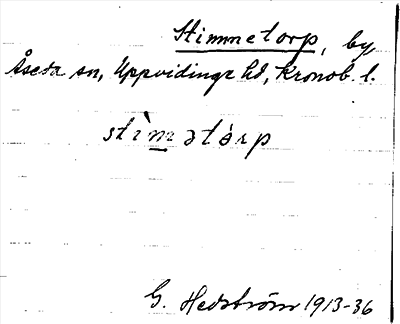 Stimmetorp, by
Åseda sn, Uppvidinge hd, Kronob. l.
stìmətårp
G. Hedström 1913-36